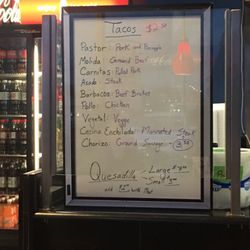 Tacos $2.50
Pastor: Pork and Pineapple
Molida: Ground Beef
Carnitas: Pulled Pork
Asada: Steak
Barbacoa: Beef Brisket
Pollo: Chicken
Vegetal: Veggie
Cecina Enchilada: Marinated Steak
Chorizo: Ground Sausage - 3.50
Quesadilla - Large
Small
add with Meat